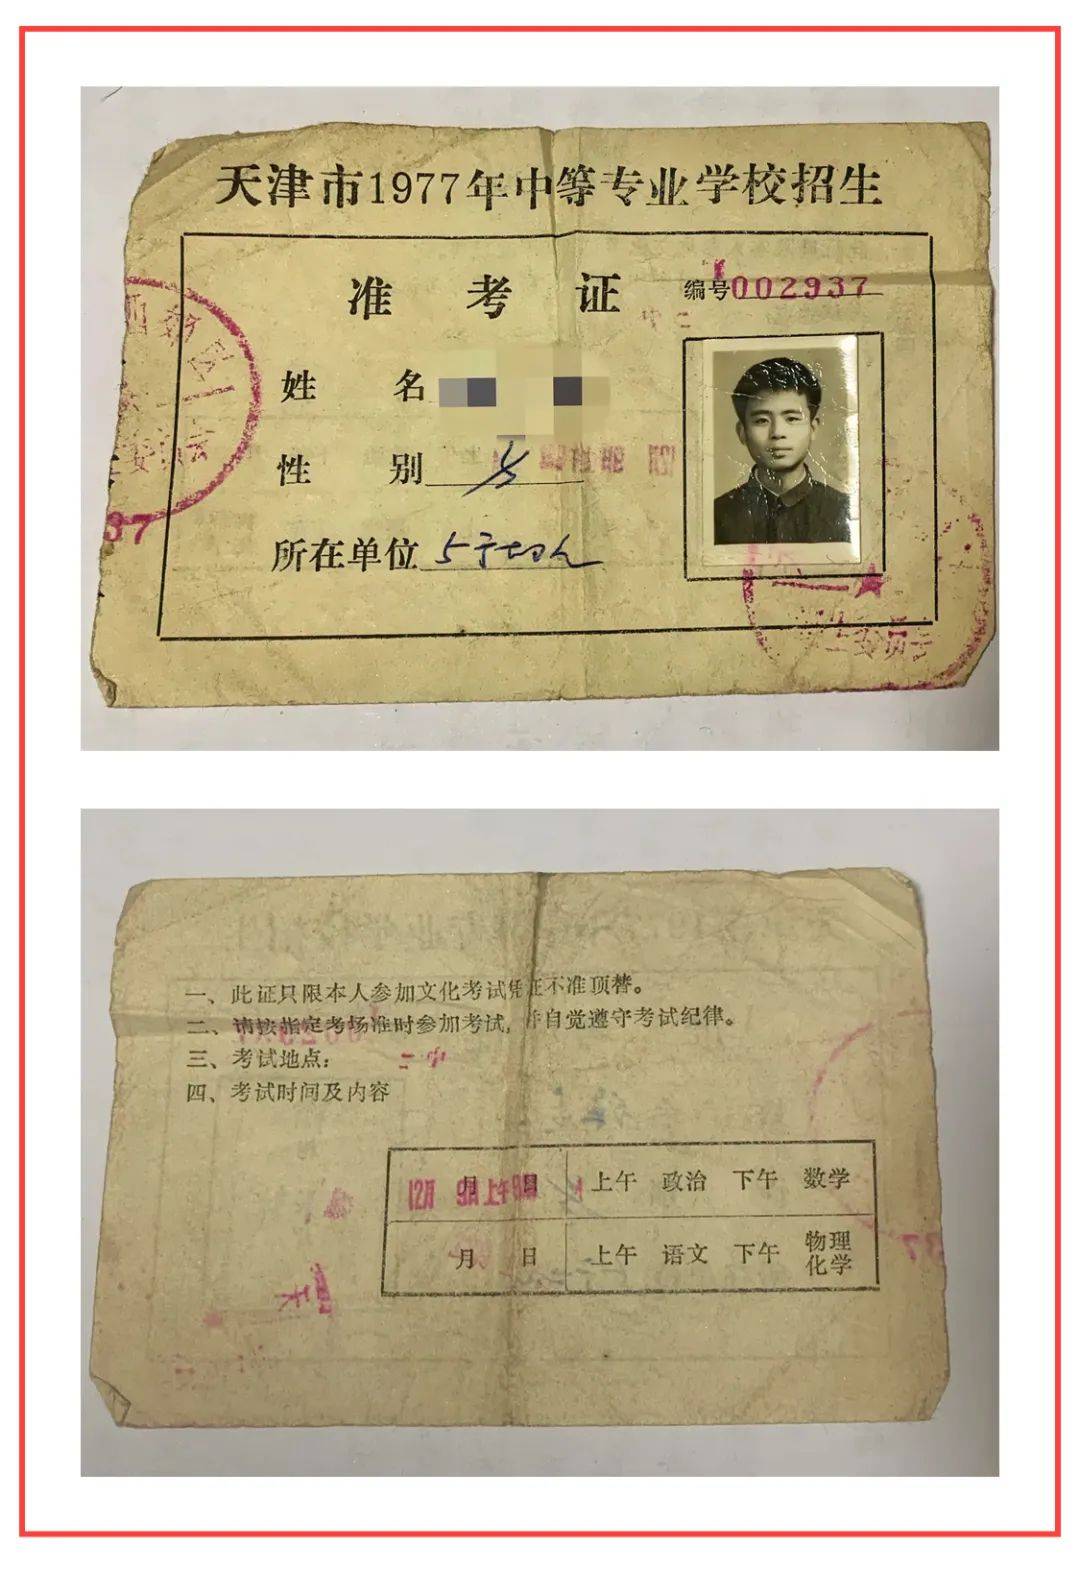 天津市1977年中等专业学校招生
准考证 编号002937
姓名
性别
所在单位
一、此证只限本人参加文化考试凭证不准顶替。
二、请按指定考场准时参加考试,并自觉遵守考试纪律。
三、考试地点: 二中
四、考试时间及内容
12月 9日上午 月 日 上午 政治 下午 数学
月 日 上午 语文 下午 物理
化学